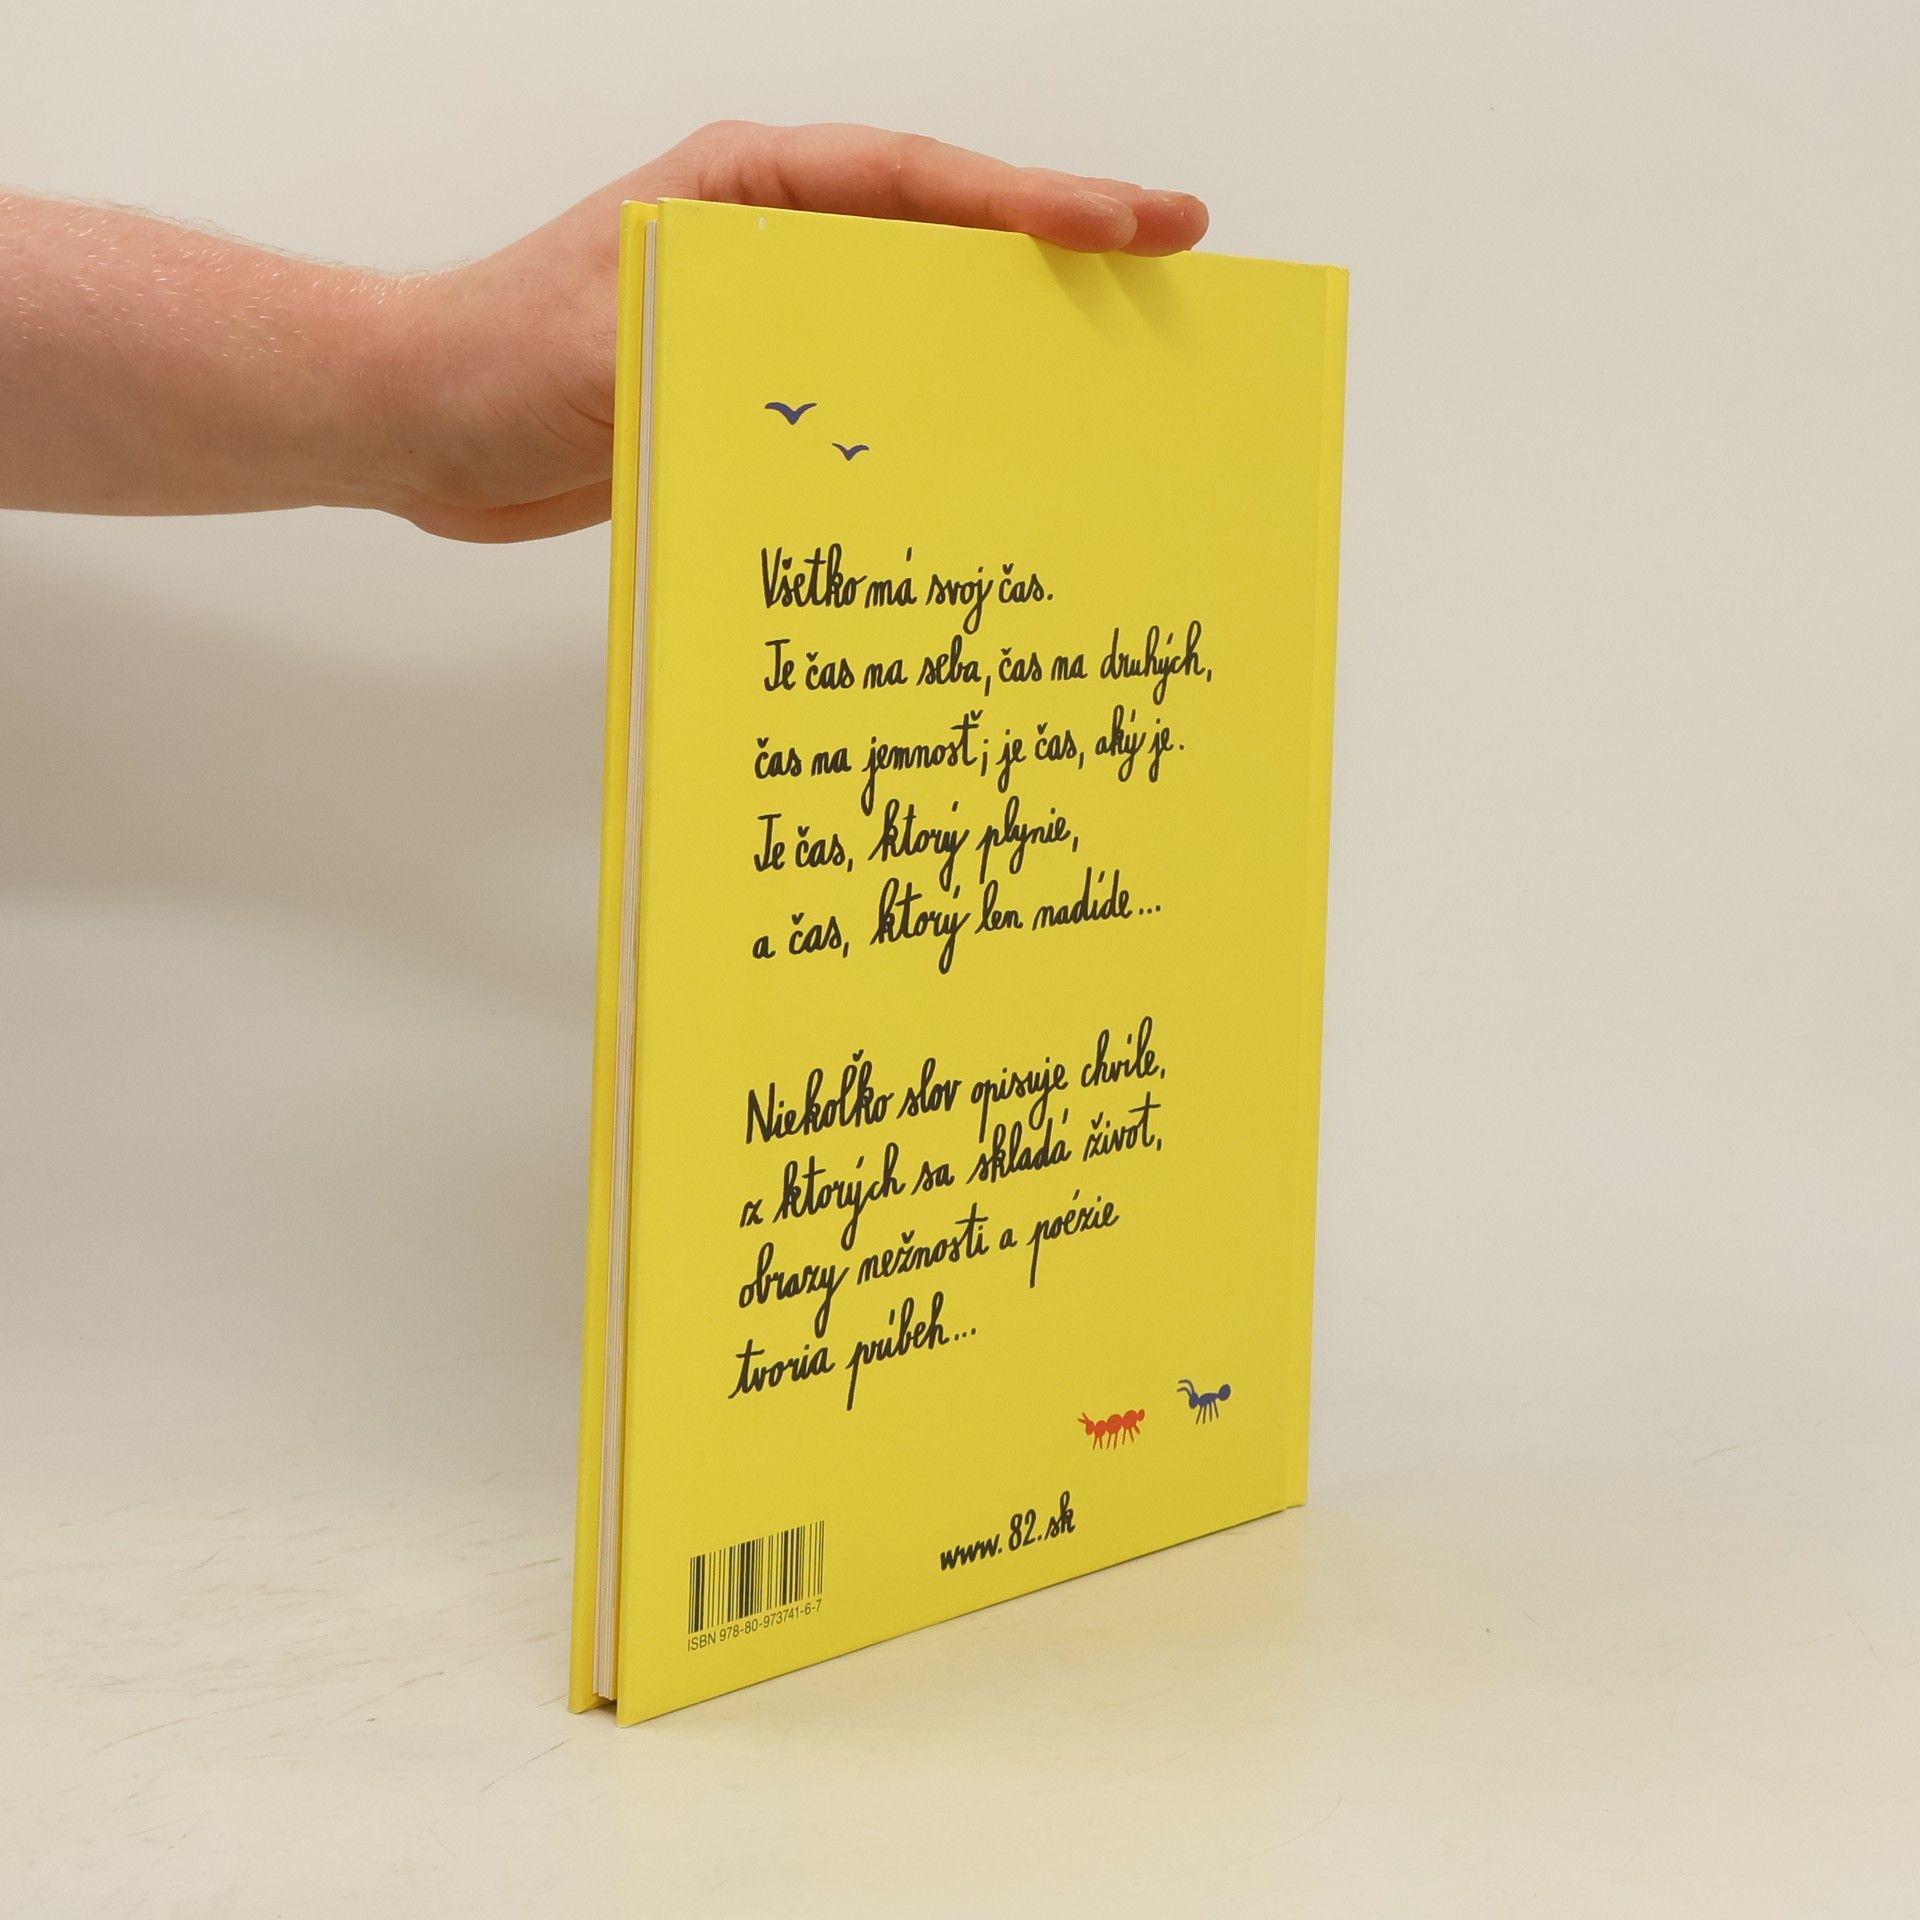 Všetko má svoj čas.
Je čas na seba, čas na druhých,
čas na jemnosť; je čas, aký je.
Je čas, ktorý plynie,
a čas, ktorý len nadíde...
Niekoľko slov opisuje chvíle,
z ktorých sa skladá život,
obrazy nežnosti a poézie
tvoria príbeh...
www.82.sk
ISBN 978-80-973741-6-7